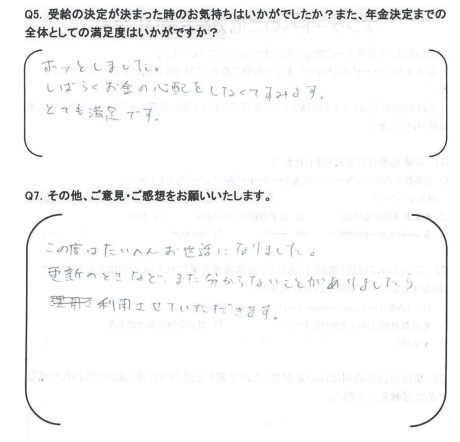 Q5. 受給の決定が決まった時のお気持ちはいかがでしたか？また、年金決定までの
全体としての満足度はいかがですか？
ホッとしました。
しばらくお金の心配をしなくてすみます。
とても満足です。
Q7. その他、ご意見・ご感想をお願いいたします。
この度はたいへんお世話になりました。
更新のときなど、また分からないことがありましたら
利用させていただきます。